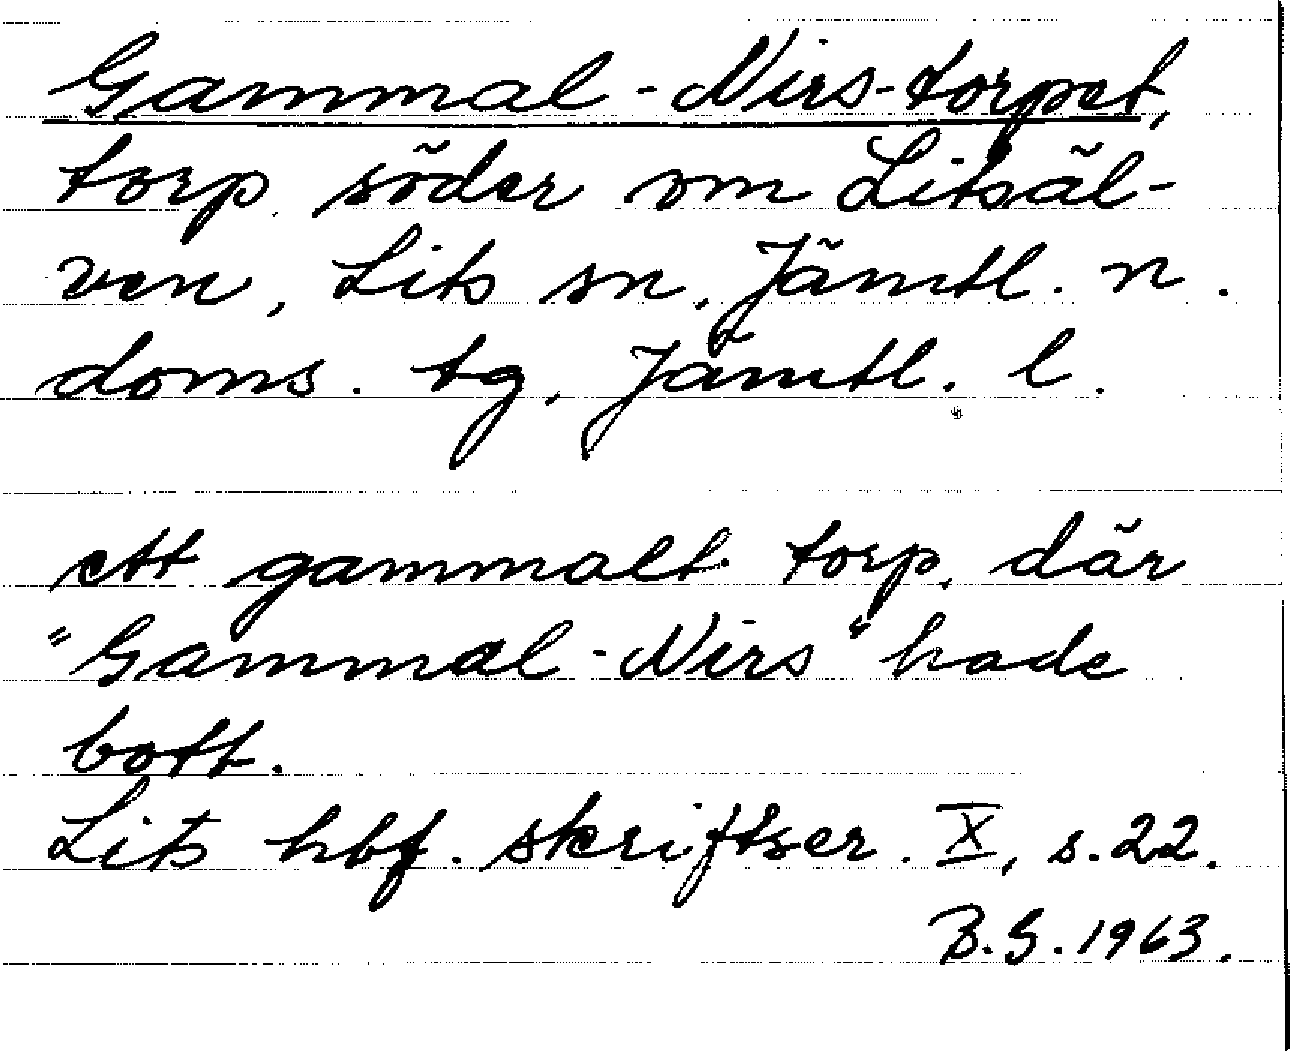 Gammal-Nirs-torpet,
torp söder om Litsäl-
ven, Lits sn, Jämtl. n.
doms. tg, Jämtl. l.
ett gammalt torp, där
"Gammal-Nirs" hade
bott.
Lits hbf. skriftser. X, s. 22.
B.G. 1963.